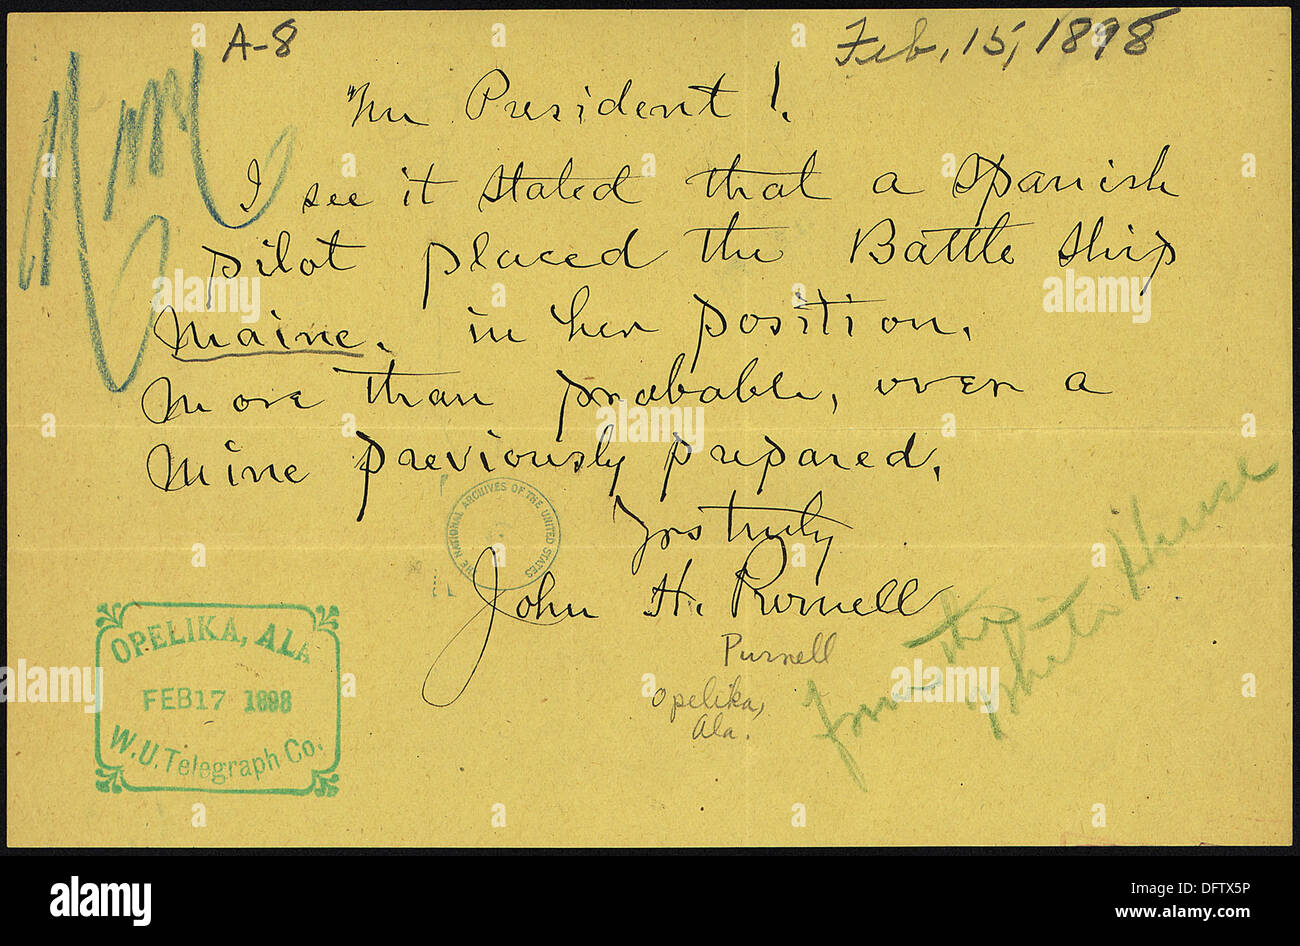 A-8
Feb. 15, 1898
Mr President!
I see it stated that a Spanish
pilot placed the Battle Ship
Maine. in her position,
More than probable, over a
Mine previously prepared.
Yrs truly
John H. Purnell
Purnell
Opelika,
Ala.
From the
White House
THE NATIONAL ARCHIVES OF THE UNITED STATES
OPELIKA, ALA
FEB 17 1898
W.U. Telegraph Co.
alamy
Image ID: DFTX5P
www.alamy.com